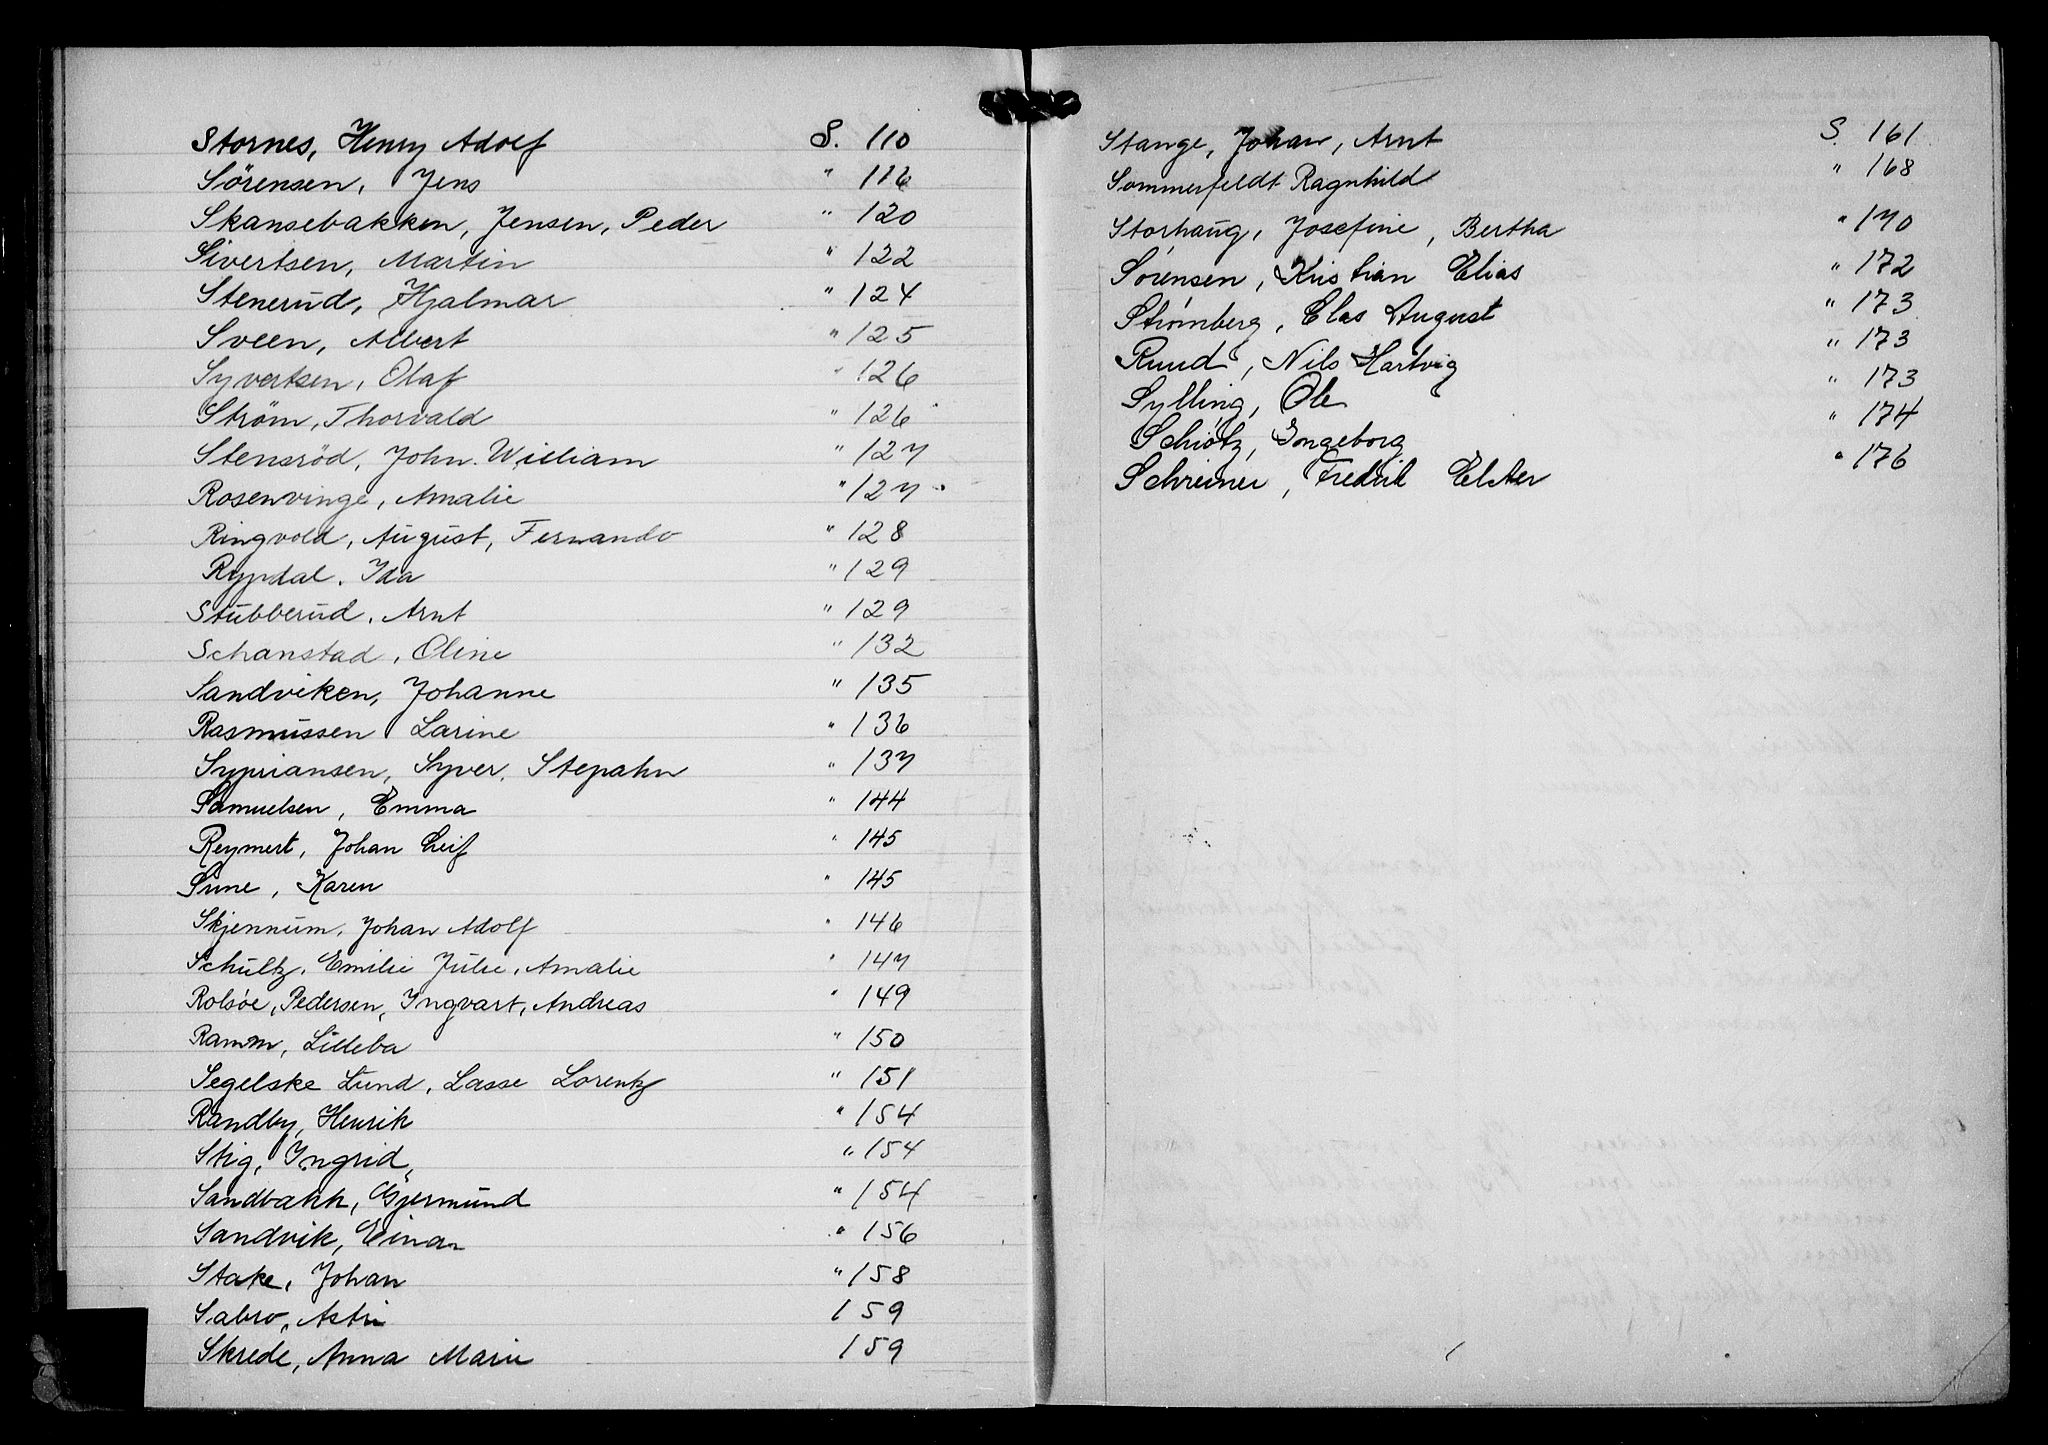 Stornes, Henry Adolf S. 110
Sörensen, Jens " 116
Skansebakken, Jensen, Peder " 120
Sivertsen, Martin " 122
Stenerud, Hjalmar " 124
Sveen, Albert " 125
Syvertsen, Olaf " 126
Ström, Thorvald " 126
Stensröd, John. William " 127
Rosenvinge, Amalie " 127
Ringvold, August, Fernando " 128
Rypdal, Ida " 129
Stubberud, Arnt " 129
Schanstad, Oline " 132
Sandviken, Johanne " 135
Rasmussen Larine " 136
Sypriansen, Syver, Stepahn " 137
Samuelsen, Emma " 144
Reymert, Johan Leif " 145
Sune, Karen " 145
Skjennum, Johan Adolf " 146
Schultz, Emilie Julie, Amalie " 147
Rolsöe, Pedersen, Ingvart, Andreas " 149
Ramm, Lilleba " 150
Segelske Lund, Lasse Lorentz " 151
Randby, Henrik " 154
Stig, Ingrid, " 154
Sandbakk, Gjermund " 154
Sandvik, Einar " 156
Stake, Johan " 158
Sabro, Astri 159
Skrede, Anna Marie 159
Stange, Johan, Arnt S. 161
Sommerfeldt Ragnhild " 168
Storhaug, Josefine, Bertha " 170
Sørensen, Kristian Elias " 172
Strømberg, Clas August " 173
Ruud, Nils Hartvig " 173
Sylling, Ole " 173
Schiøtz, Ingeborg " 174
Schreiner, Fredrik Elster " 176